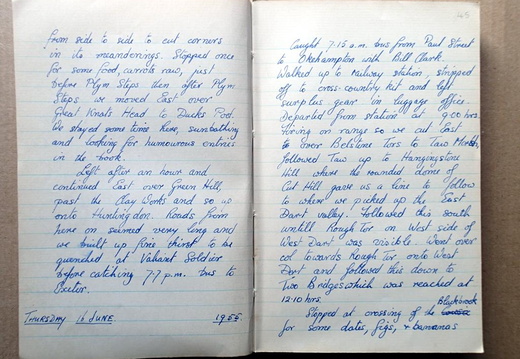 from side to side to cut corners
in its meanderings. Stopped once
for some food, carrots raw, just
before Plym Steps then after Plym
Steps we moved East over
Great Knats Head to Ducks Pool.
We stayed some time here, sunbathing
and looking for humourous entries
in the book.
Left after an hour and
continued East over Green Hill,
past the Clay Works and so up
onto Huntingdon. Roads from
here on seemed very long and
we built up fine thirst to be
quenched at Valiant Soldier
before catching 7.7 p.m. bus to
Exeter.
THURSDAY 16 JUNE. 1955.
Caught 7.15 a.m. bus from Paul Street
to Okehampton with Bill Clark.
Walked up to railway station, stripped
off to cross-country kit and left
surplus gear in luggage office.
Departed from station at 9.00 hrs.
Firing on range so we cut East
over Belstone Tors to Taw Marsh,
followed Taw up to Hangingstone
Hill where the rounded dome of
Cut Hill gave us a line to follow
to where we picked up the East
Dart valley. Followed this south
untill Rough Tor on West side of
West Dart was visible. Went over
col towards Rough Tor onto West
Dart and followed this down to
Two Bridges which was reached at
12.10 hrs.
Stopped at crossing of the Blackbrook
for some dates, figs, + bananas